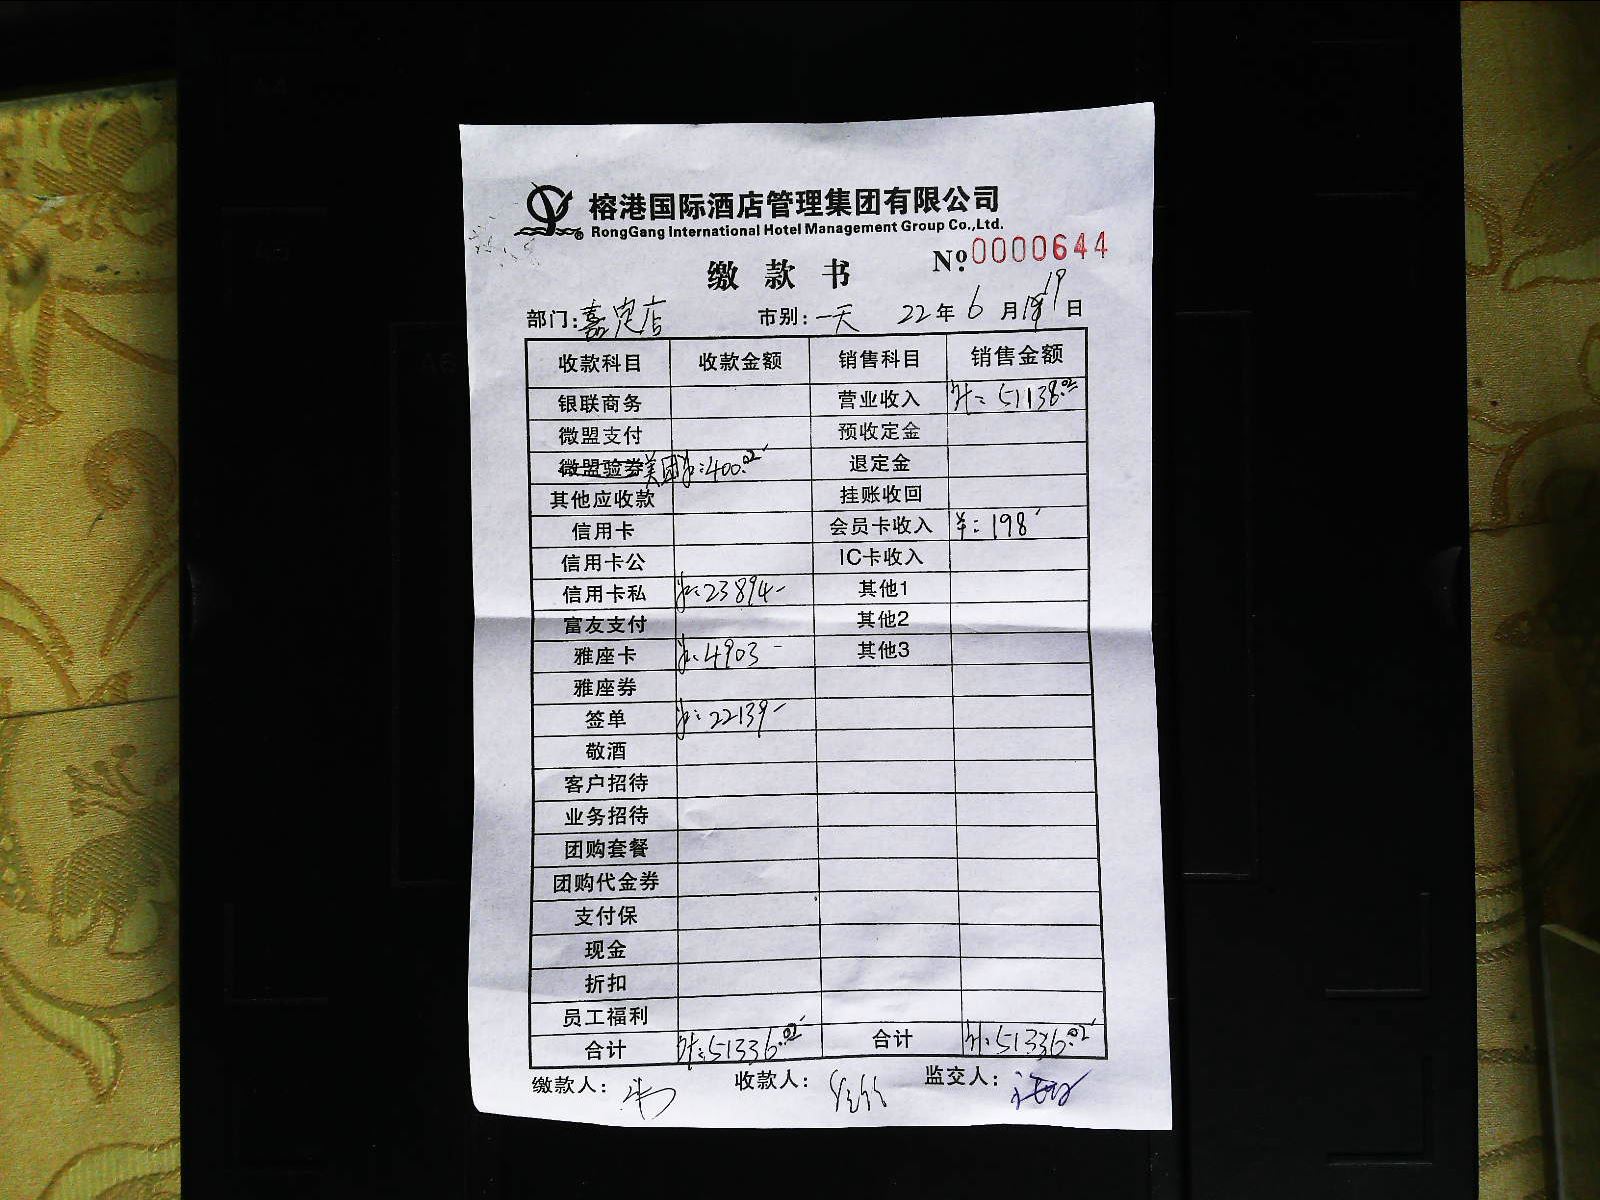 榕港国际酒店管理集团有限公司
RongGang International Hotel Management Group Co.,Ltd.
№ 0000644
缴款书
部门: 嘉定店 市别: 一天 22年6月19日
收款科目 收款金额 销售科目 销售金额
银联商务 营业收入 ¥: 51138.02
微盟支付 预收定金
微盟验券 美团 ¥:400.02 退定金
其他应收款 挂账收回
信用卡 会员卡收入 ¥:198
信用卡公 IC卡收入
信用卡私 ¥:23894- 其他1
富友支付 其他2
雅座卡 ¥:4903- 其他3
雅座券
签单 ¥:22139-
敬酒
客户招待
业务招待
团购套餐
团购代金券
支付保
现金
折扣
员工福利
合计 ¥:51336.02 合计 ¥:51336.02
缴款人: 收款人: 监交人: